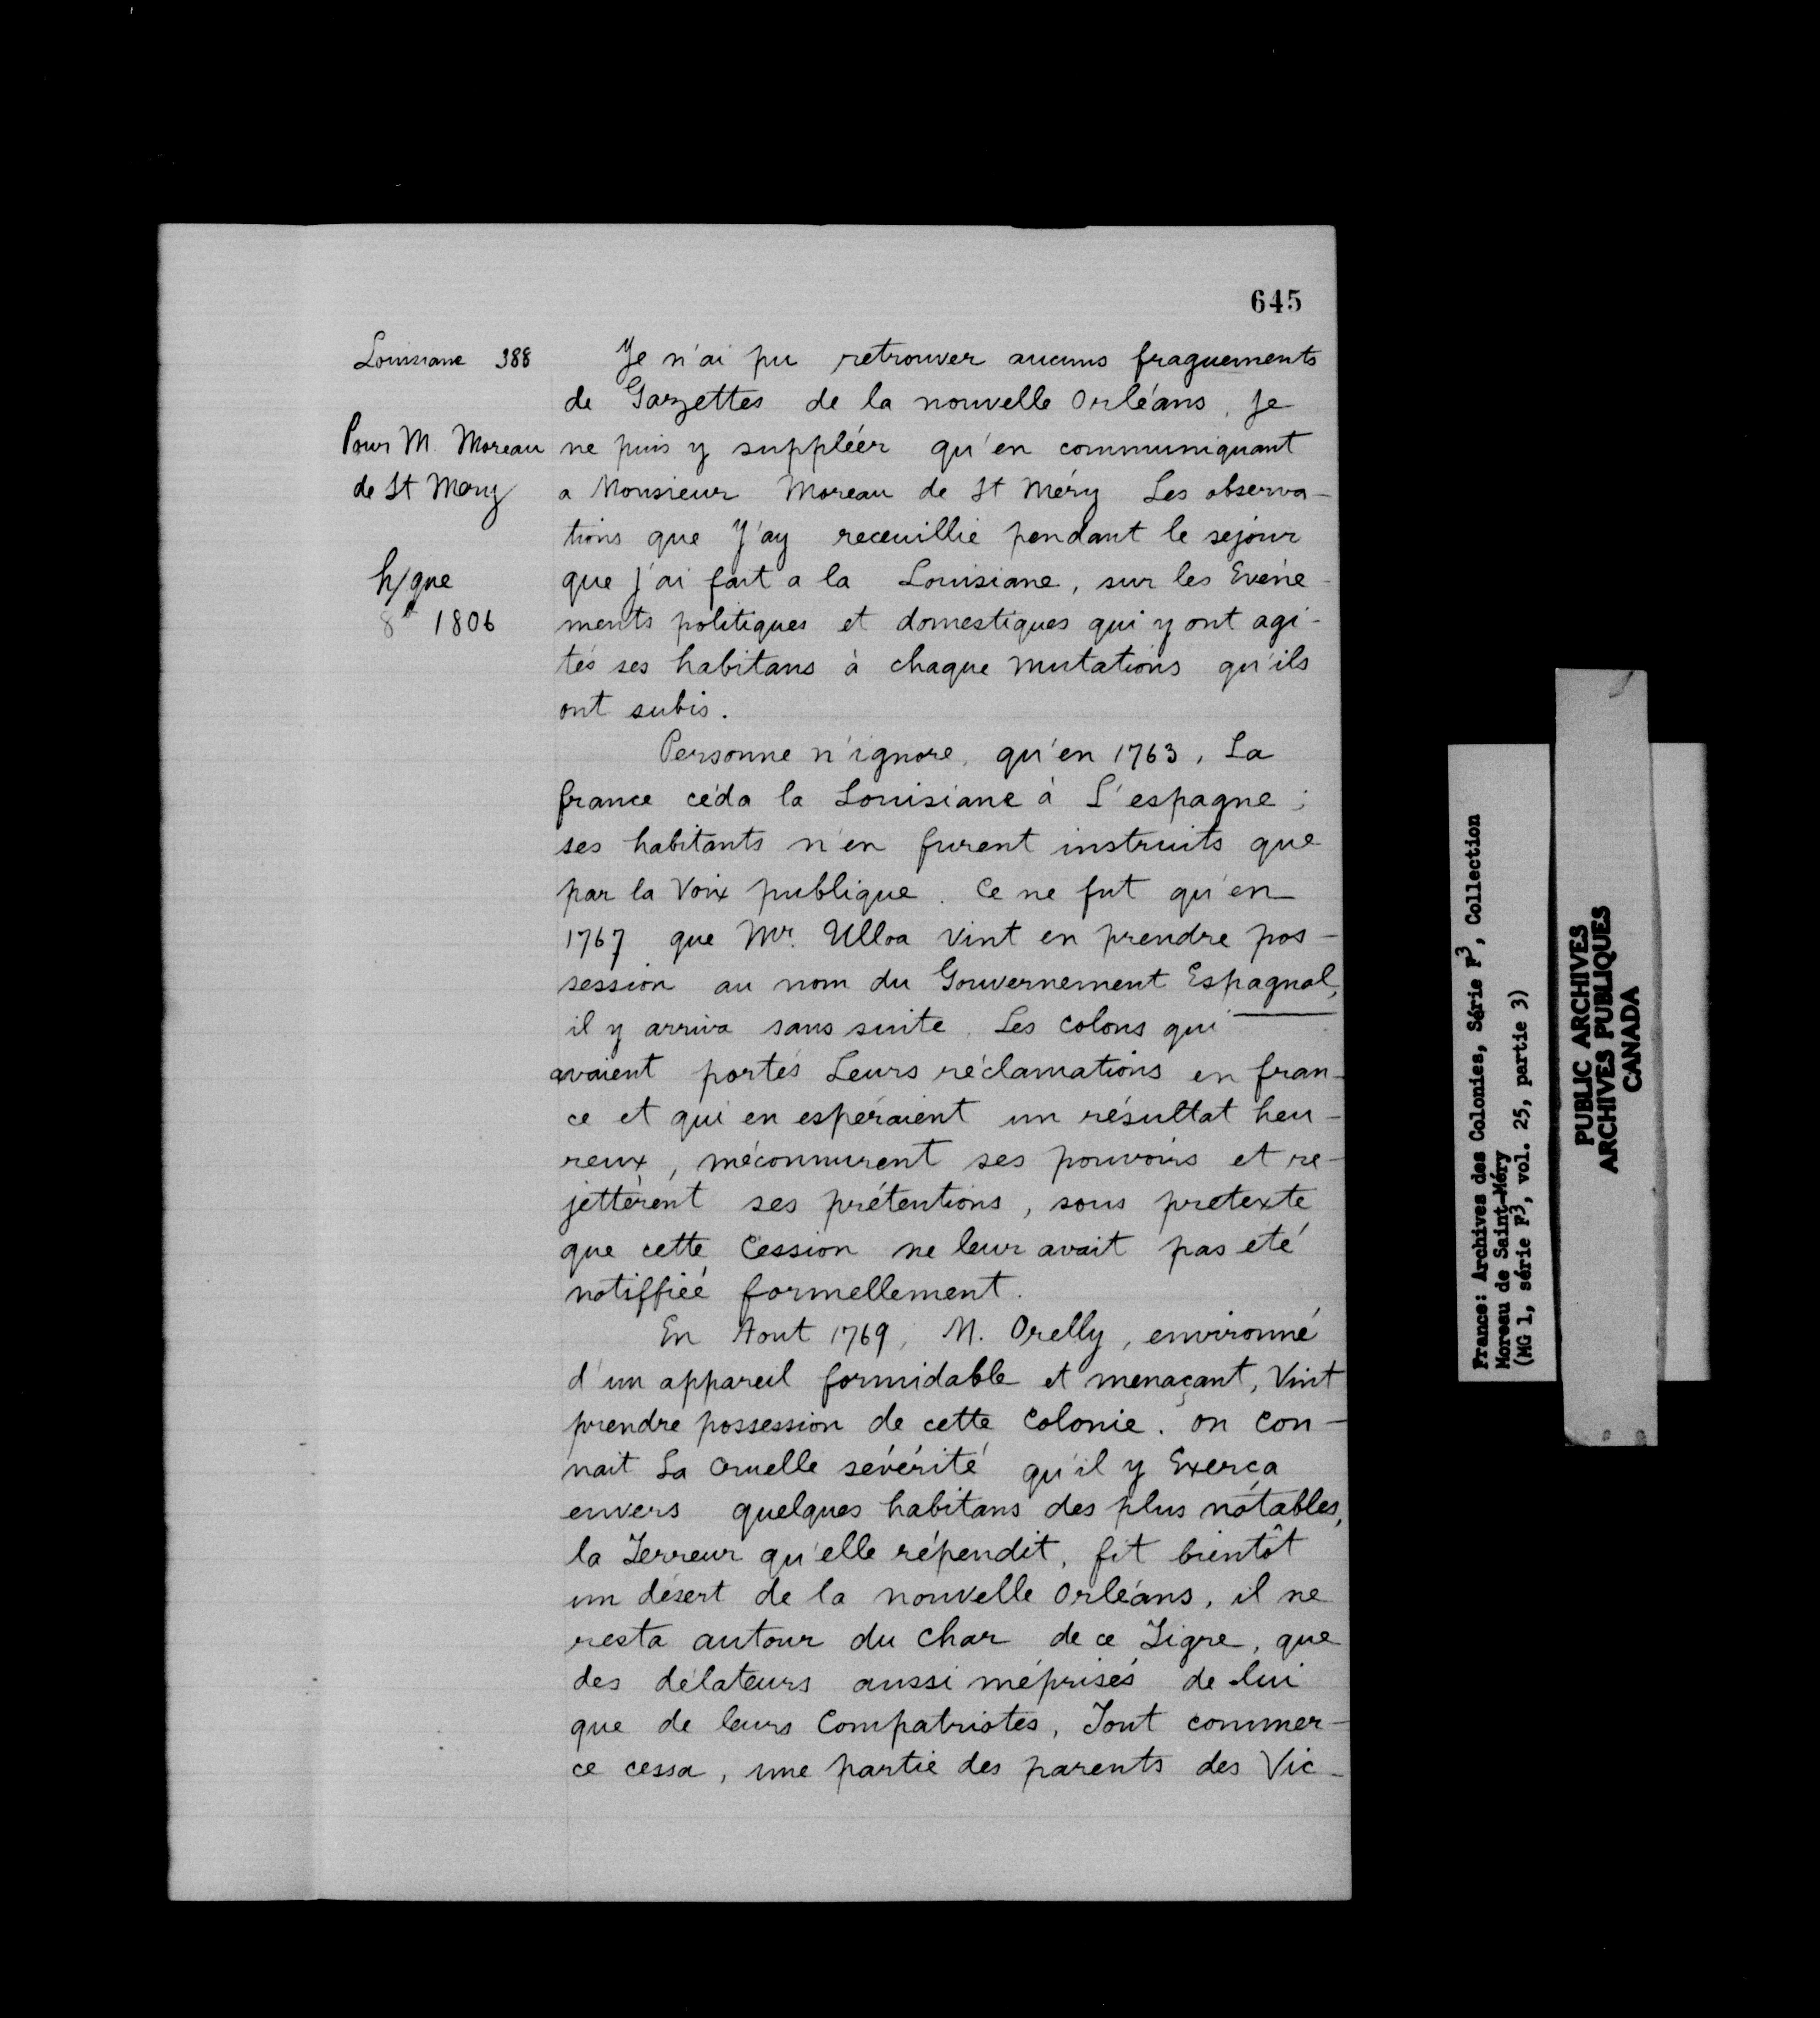 645
Louisiane 388
Pour M. Moreau
de St Mery
h/que
8bre 1806
Je n'ai pu retrouver aucuns fraguements
de Gazzettes de la nouvelle Orléans, Je
ne puis y suppléer qu'en communiquant
a Monsieur Moreau de St Méry Les observa-
tions que J'ay receuillie pendant le sejour
que j'ai fait a la Louisiane, sur les Evéne-
ments politiques et domestiques qui y ont agi-
tés ses habitans à chaque mutations qu'ils
ont subis.
Personne n'ignore, qu'en 1763, La
france céda la Louisiane à L'espagne;
ses habitants n'en furent instruits que
par la Voix publique. Ce ne fut qu'en
1767 que Mr. Ulloa vint en prendre pos-
session au nom du Gouvernement Espagnol,
il y arriva sans suite. Les colons qui
avaient portés Leurs réclamations en fran-
ce et qui en espéraient un résultat heu-
reux, méconnurent ses pouvoirs et re-
jettèrent ses prétentions, sous pretexte
que cette Cession ne leur avait pas été
notiffiée formellement.
En Aout 1769, M. Orelly, environné
d'un appareil formidable et menaçant, Vint
prendre possession de cette Colonie. on con-
nait La cruelle sévérité qu'il y Exerça
envers quelques habitans des plus notables,
la Terreur qu'elle répendit, fit bientôt
un désert de la nouvelle Orléans, il ne
resta autour du char de ce Tigre, que
des délateurs aussi méprisés de lui
que de leurs Compatriotes, Tout commer-
ce cessa, une partie des parents des Vic-
France: Archives des Colonies, Série F3, Collection
Moreau de Saint-Méry
(MG 1, série F3, vol. 25, partie 3)
PUBLIC ARCHIVES
ARCHIVES PUBLIQUES
CANADA